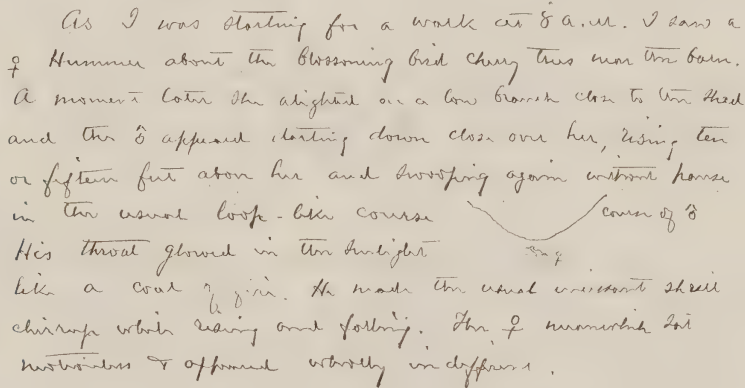 As I was starting for a walk at 8 A.M. I saw a
♀ Hummer about the blossoming bird cherry trees near the barn.
A moment later she alighted on a low branch close to the shed
and the ♂ appeared darting down close over her, rising ten
or fifteen feet above her and swooping again without pause
in the usual loop-like course course of ♂
♀
His throat glowed in the sunlight
like a coal of fire. He made the usual incessant shrill
chirrup while rising and falling. The ♀ meanwhile sat
motionless & appeared wholly indifferent.